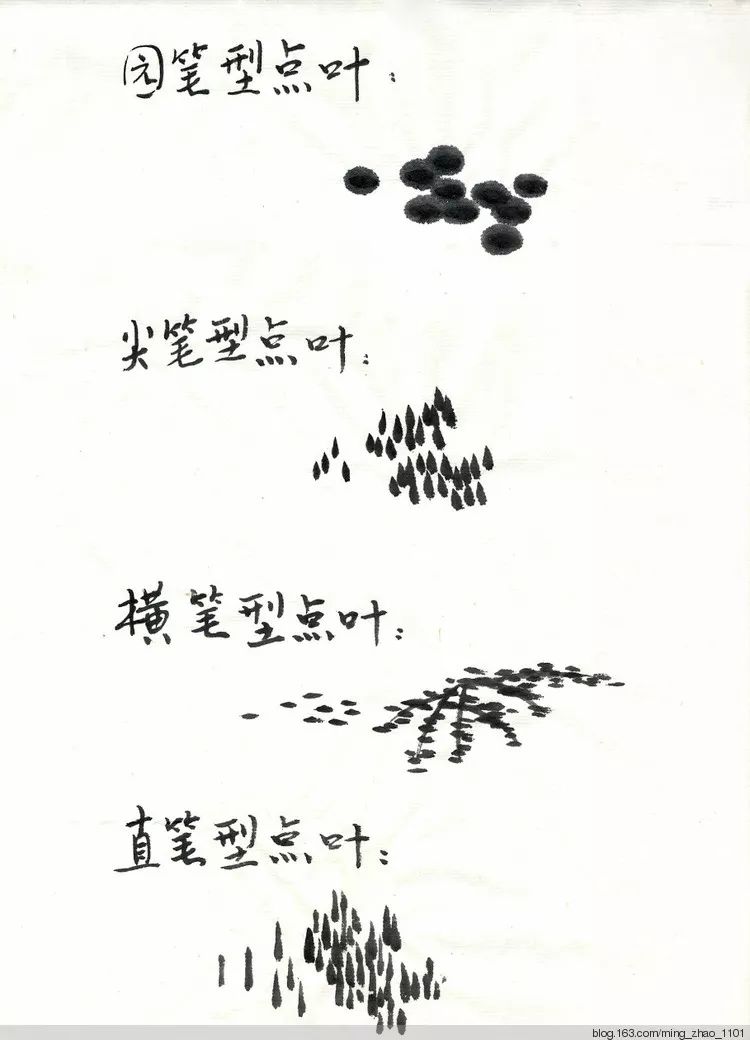 园笔型点叶：
尖笔型点叶：
横笔型点叶：
直笔型点叶：
blog.163.com/ming_zhao_1101